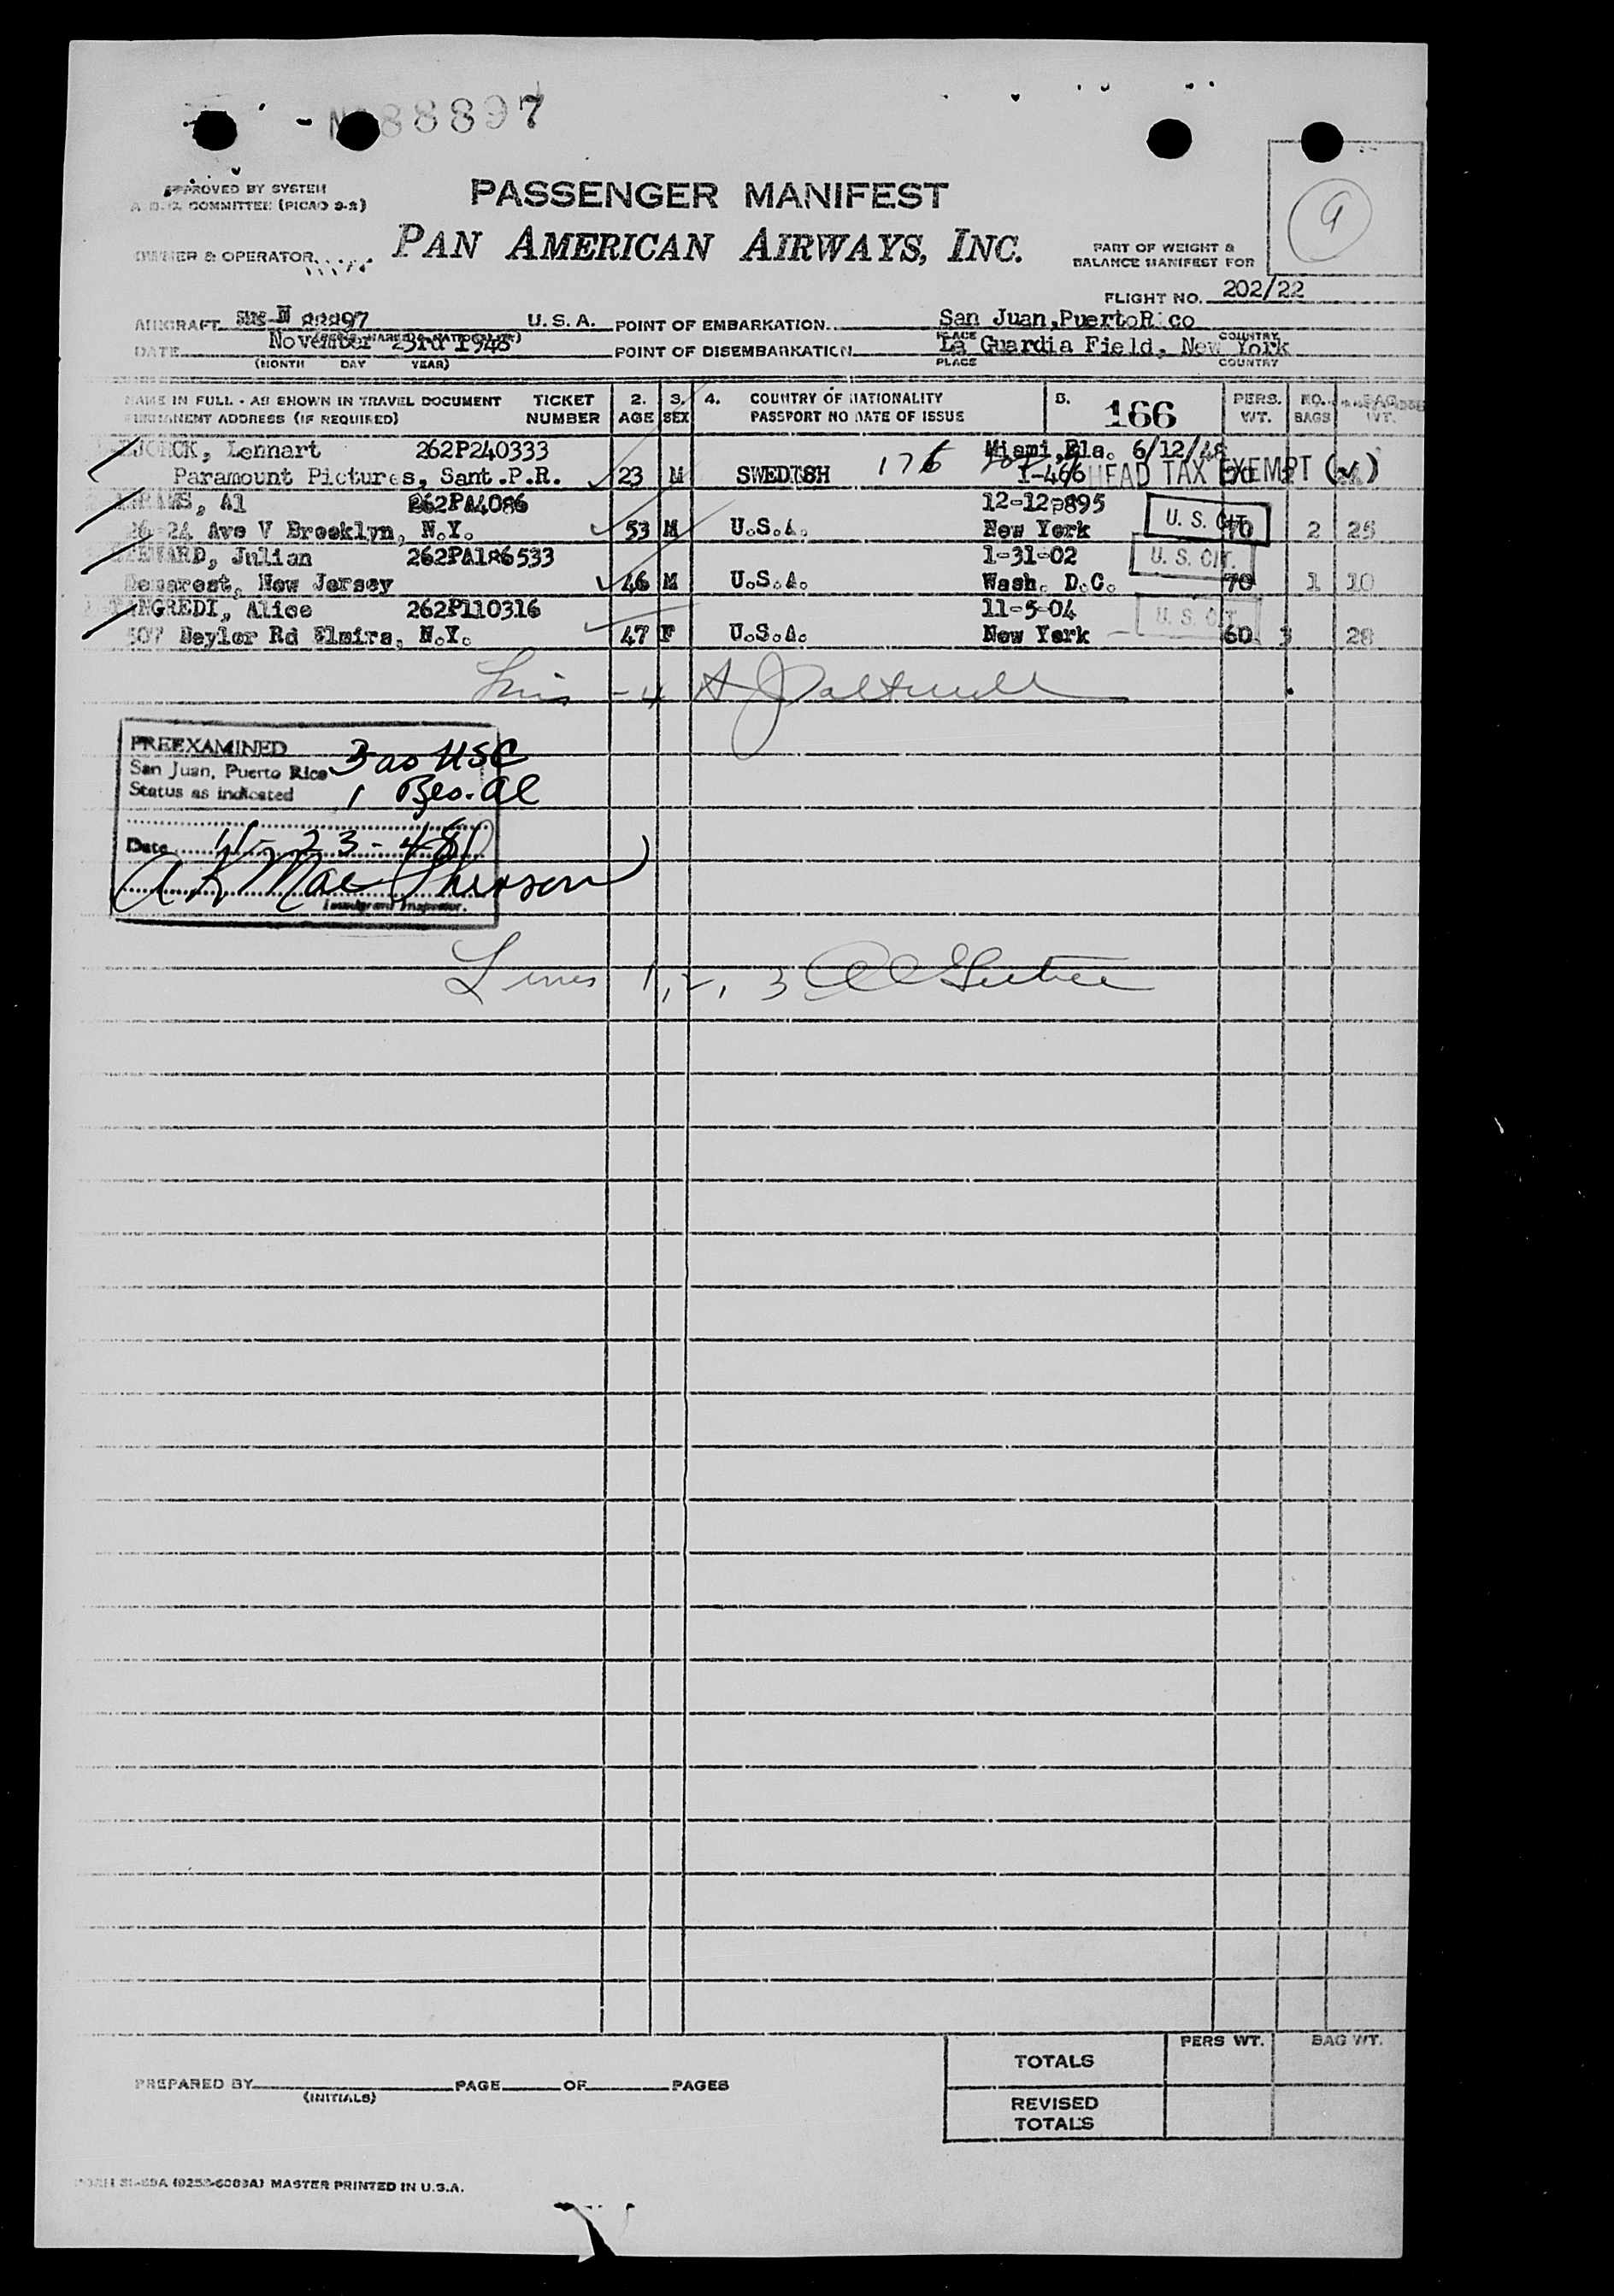 88897
APPROVED BY SYSTEM
COMMITTEE (PICAO 9-2)
PASSENGER MANIFEST
9
OWNER & OPERATOR
PAN AMERICAN AIRWAYS, INC.
PART OF WEIGHT &
BALANCE MANIFEST FOR
FLIGHT NO. 202/22
AIRCRAFT N 88897 U.S.A. POINT OF EMBARKATION San Juan,PuertoRico
PLACE COUNTRY
DATE November 23rd 1948 POINT OF DISEMBARKATION La Guardia Field, New York
(MONTH DAY YEAR) PLACE COUNTRY
NAME IN FULL - AS SHOWN IN TRAVEL DOCUMENT TICKET 2. 3. 4. COUNTRY OF NATIONALITY 5. 166 PERS. NO. BAG
PERMANENT ADDRESS (IF REQUIRED) NUMBER AGE SEX PASSPORT NO DATE OF ISSUE WT. BAGS WT.
Lennart 262P240333 Miami,Fla. 6/12/48
Paramount Pictures, Sant.P.R. 23 M SWEDISH 176 I-466 HEAD TAX EXEMPT (✓)
Al 262PA4086 12-12-895
Ave V Brooklyn, N.Y. 53 M U.S.A. New York U. S. CIT. 70 2 25
Julian 262PA186533 1-31-02
Demarest, New Jersey 46 M U.S.A. Wash. D.C. U. S. CIT. 70 1 10
Alice 262P110316 11-5-04
Rd Elmira, N.Y. 47 F U.S.A. New York U. S. CIT. 60 28
PREEXAMINED
San Juan, Puerto Rico 3 as USC
Status as indicated 1 Res. al
Date 11-23-48
A K MacPherson
Immigrant Inspector.
Lines 1, 2, 3
TOTALS PERS WT. BAG WT.
PREPARED BY PAGE OF PAGES
(INITIALS)
REVISED
TOTALS
MASTER PRINTED IN U.S.A.